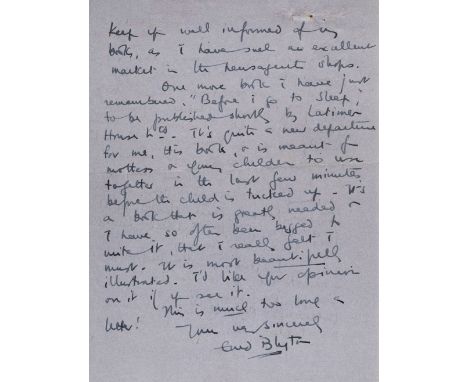 Keep you well informed of my
books, as I have such an excellent
market in the newsagents shops.
One more book I have just
remembered. "Before I go to Sleep",
to be published shortly by Latimer
House Ltd. It's quite a new departure
for me, this book, & is meant for
mothers & young children to use
together in the last few minutes
before the child is tucked up. It's
a book that is greatly needed &
I have so often been begged to
write it, that I really felt I
must. It is most beautifully
illustrated. I'd like your opinion
on it if you see it.
This is much too long a
letter!
Yours very sincerely
Enid Blyton